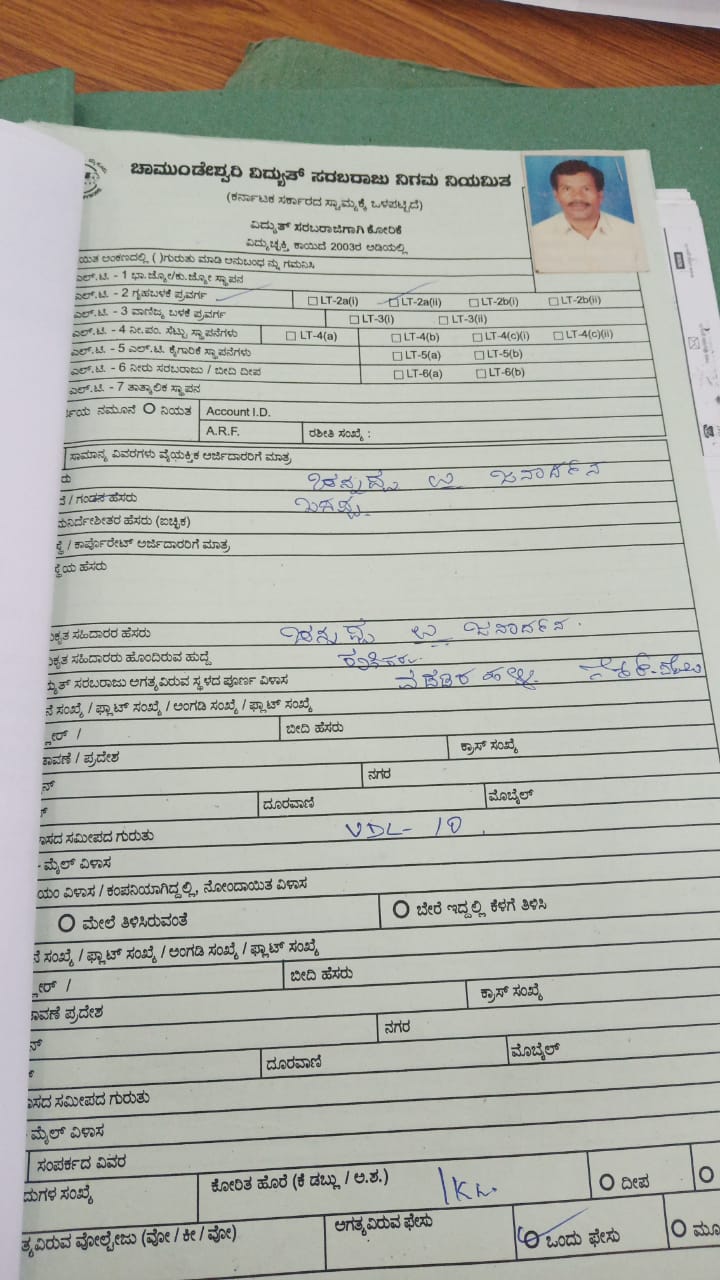 ಚಾಮುಂಡೇಶ್ವರಿ ವಿದ್ಯುತ್ ಸರಬರಾಜು ನಿಗಮ ನಿಯಮಿತ
(ಕರ್ನಾಟಕ ಸರ್ಕಾರದ ಸ್ವಾಮ್ಯಕ್ಕೆ ಒಳಪಟ್ಟಿದೆ)
ವಿದ್ಯುತ್ ಸರಬರಾಜಿಗಾಗಿ ಕೋರಿಕೆ
ವಿದ್ಯುಚ್ಛಕ್ತಿ ಕಾಯಿದೆ 2003ರ ಅಡಿಯಲ್ಲಿ
ಯಿತ ಅಂಕಣದಲ್ಲಿ ( )ಗುರುತು ಮಾಡಿ ಅನುಬಂಧ ನ್ನು ಗಮನಿಸಿ
ಎಲ್.ಟಿ. - 1 ಭಾ.ಜ್ಯೋ/ಕು.ಜ್ಯೋ ಸ್ಥಾಪನ
ಎಲ್.ಟಿ. - 2 ಗೃಹಬಳಕೆ ಪ್ರವರ್ಗ LT-2a(i) LT-2a(ii) LT-2b(i) LT-2b(ii)
ಎಲ್.ಟಿ. - 3 ವಾಣಿಜ್ಯ ಬಳಕೆ ಪ್ರವರ್ಗ LT-3(i) LT-3(ii)
ಎಲ್.ಟಿ. - 4 ನೀ.ಪಂ. ಸೆಟ್ಟು ಸ್ಥಾಪನೆಗಳು LT-4(a) LT-4(b) LT-4(c)(i) LT-4(c)(ii)
ಎಲ್.ಟಿ. - 5 ಎಲ್.ಟಿ. ಕೈಗಾರಿಕೆ ಸ್ಥಾಪನೆಗಳು LT-5(a) LT-5(b)
ಎಲ್.ಟಿ. - 6 ನೀರು ಸರಬರಾಜು / ಬೀದಿ ದೀಪ LT-6(a) LT-6(b)
ಎಲ್.ಟಿ. - 7 ತಾತ್ಕಾಲಿಕ ಸ್ಥಾಪನ
ರ್ಜಿಯ ನಮೂನೆ ನಿಯತ Account I.D.
A.R.F. ರಶೀತಿ ಸಂಖ್ಯೆ :
ಸಾಮಾನ್ಯ ವಿವರಗಳು ವೈಯಕ್ತಿಕ ಅರ್ಜಿದಾರರಿಗೆ ಮಾತ್ರ
ರು ಜನಾರ್ದನ
ನೆ / ಗಂಡನ ಹೆಸರು
ಮನಿರ್ದೇಶಿತರ ಹೆಸರು (ಐಚ್ಛಿಕ)
ಸ್ಥೆ / ಕಾರ್ಪೊರೇಟ್ ಅರ್ಜಿದಾರರಿಗೆ ಮಾತ್ರ
ಸ್ಥೆಯ ಹೆಸರು
ಧಿಕೃತ ಸಹಿದಾರರ ಹೆಸರು ಜನಾರ್ದನ.
ಧಿಕೃತ ಸಹಿದಾರರು ಹೊಂದಿರುವ ಹುದ್ದೆ
ದ್ಯುತ್ ಸರಬರಾಜು ಅಗತ್ಯವಿರುವ ಸ್ಥಳದ ಪೂರ್ಣ ವಿಳಾಸ
ನೆ ಸಂಖ್ಯೆ / ಫ್ಲಾಟ್ ಸಂಖ್ಯೆ / ಅಂಗಡಿ ಸಂಖ್ಯೆ / ಫ್ಲಾಟ್ ಸಂಖ್ಯೆ
ಲೋರ್ / ಬೀದಿ ಹೆಸರು
ಡಾವಣೆ / ಪ್ರದೇಶ ಕ್ರಾಸ್ ಸಂಖ್ಯೆ
ನ್ ನಗರ
ದೂರವಾಣಿ ಮೊಬೈಲ್
ಾಸದ ಸಮೀಪದ ಗುರುತು VDL-10.
- ಮೈಲ್ ವಿಳಾಸ
ಯಂ ವಿಳಾಸ / ಕಂಪನಿಯಾಗಿದ್ದಲ್ಲಿ, ನೋಂದಾಯಿತ ವಿಳಾಸ
ಮೇಲೆ ತಿಳಿಸಿರುವಂತೆ ಬೇರೆ ಇದ್ದಲ್ಲಿ ಕೆಳಗೆ ತಿಳಿಸಿ
ನೆ ಸಂಖ್ಯೆ / ಫ್ಲಾಟ್ ಸಂಖ್ಯೆ / ಅಂಗಡಿ ಸಂಖ್ಯೆ / ಫ್ಲಾಟ್ ಸಂಖ್ಯೆ
ಲೋರ್ / ಬೀದಿ ಹೆಸರು
ಡಾವಣೆ ಪ್ರದೇಶ ಕ್ರಾಸ್ ಸಂಖ್ಯೆ
ನ್ ನಗರ
ದೂರವಾಣಿ ಮೊಬೈಲ್
ಾಸದ ಸಮೀಪದ ಗುರುತು
- ಮೈಲ್ ವಿಳಾಸ
ಸಂಪರ್ಕದ ವಿವರ
ದುಗಳ ಸಂಖ್ಯೆ ಕೋರಿತ ಹೊರೆ (ಕೆ ಡಬ್ಲು / ಅ.ಶ.) ದೀಪ
ತ್ಯವಿರುವ ವೋಲ್ಟೇಜು (ವೋ / ಕೀ / ವೋ) ಅಗತ್ಯವಿರುವ ಫೇಸು ಒಂದು ಫೇಸು ಮೂ